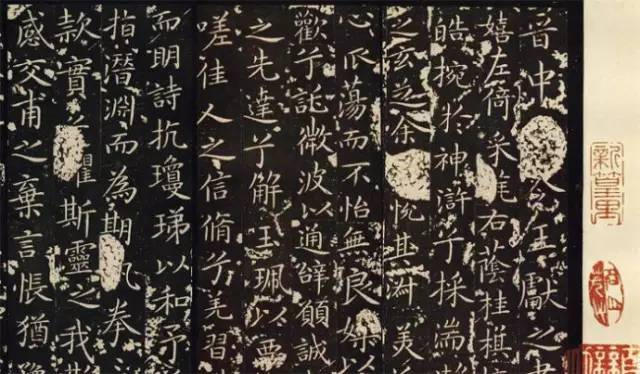 晉中令王獻之書
嬉左倚采旄右蔭桂旗
皓捥於神滸兮採湍
之玄芝余悅其淑美
心振蕩而不怡無良媒
歡兮託微波以通辭願誠
之先達兮解玉珮以要
嗟佳人之信脩兮羌習
而明詩抗瓊珶以和予
指潛淵而為期執拳
款實兮懼斯靈之我欺
感交甫之棄言悵猶豫